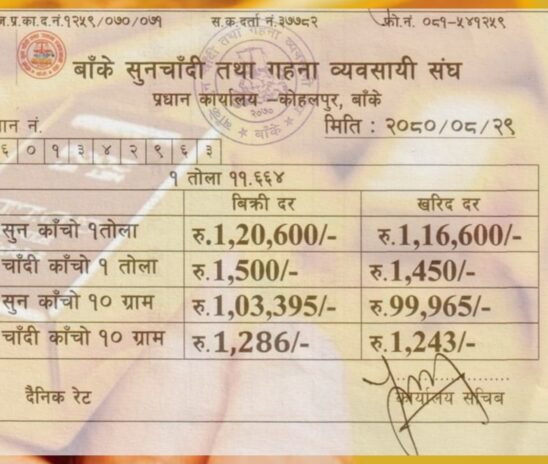 ज.प्र.का.द.नं.१२५९/०७०/०७१ स.क.दर्ता नं.३७७८२ फो.नं. ०८१-५४१२५९
बाँके सुनचाँदी तथा गहना व्यवसायी संघ
प्रधान कार्यालय –कोहलपुर, बाँके
नं.
मिति : २०८०/०८/२९
६ ० १ ३ ४ २ ९ ६ ३
१ तोला ११.६६४
बिक्री दर खरिद दर
सुन काँचो १तोला रु.1,20,600/- रु.1,16,600/-
चाँदी काँचो १ तोला रु.1,500/- रु.1,450/-
सुन काँचो १० ग्राम रु.1,03,395/- रु.99,965/-
चाँदी काँचो १० ग्राम रु.1,286/- रु.1,243/-
दैनिक रेट
कार्यालय सचिब